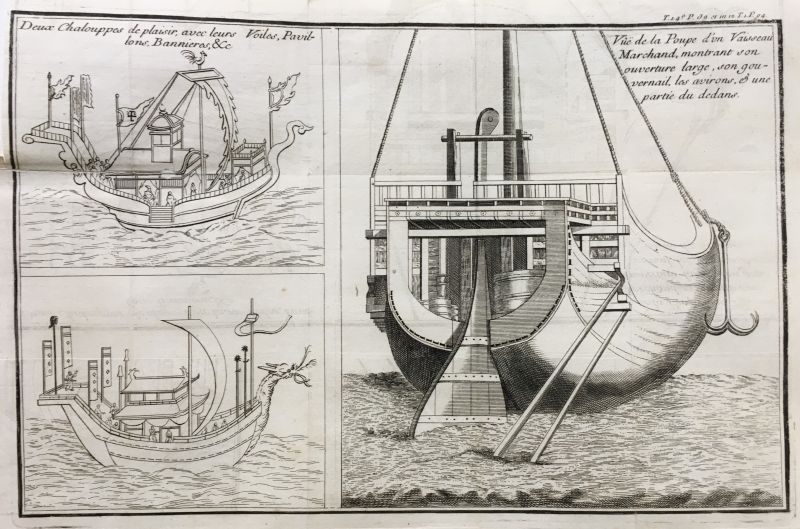 T. 4º P. 89 et in 12 T. 1. P. 94
Deux Chalouppes de plaisir, avec leurs Voiles, Pavil-
lons, Bannieres, &c
Vüe de la Poupe d'vn Vaisseau
Marchand, montrant son
ouverture large, son gou-
vernail, les avirons, & une
partie du dedans.